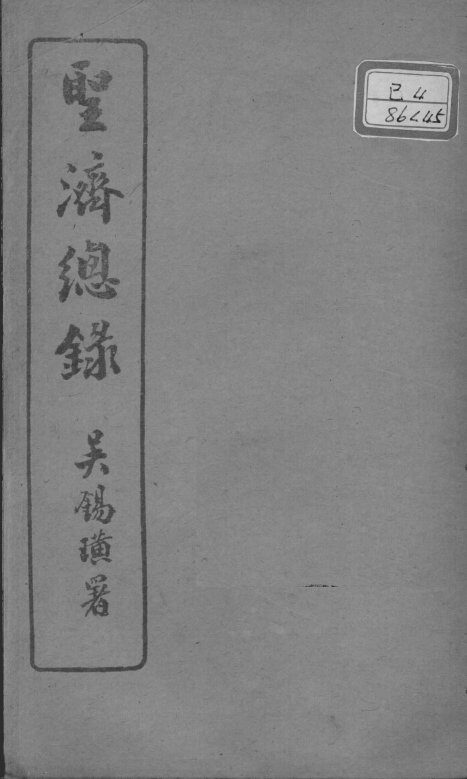 聖濟總錄
吳錫璜署
己 4
86445